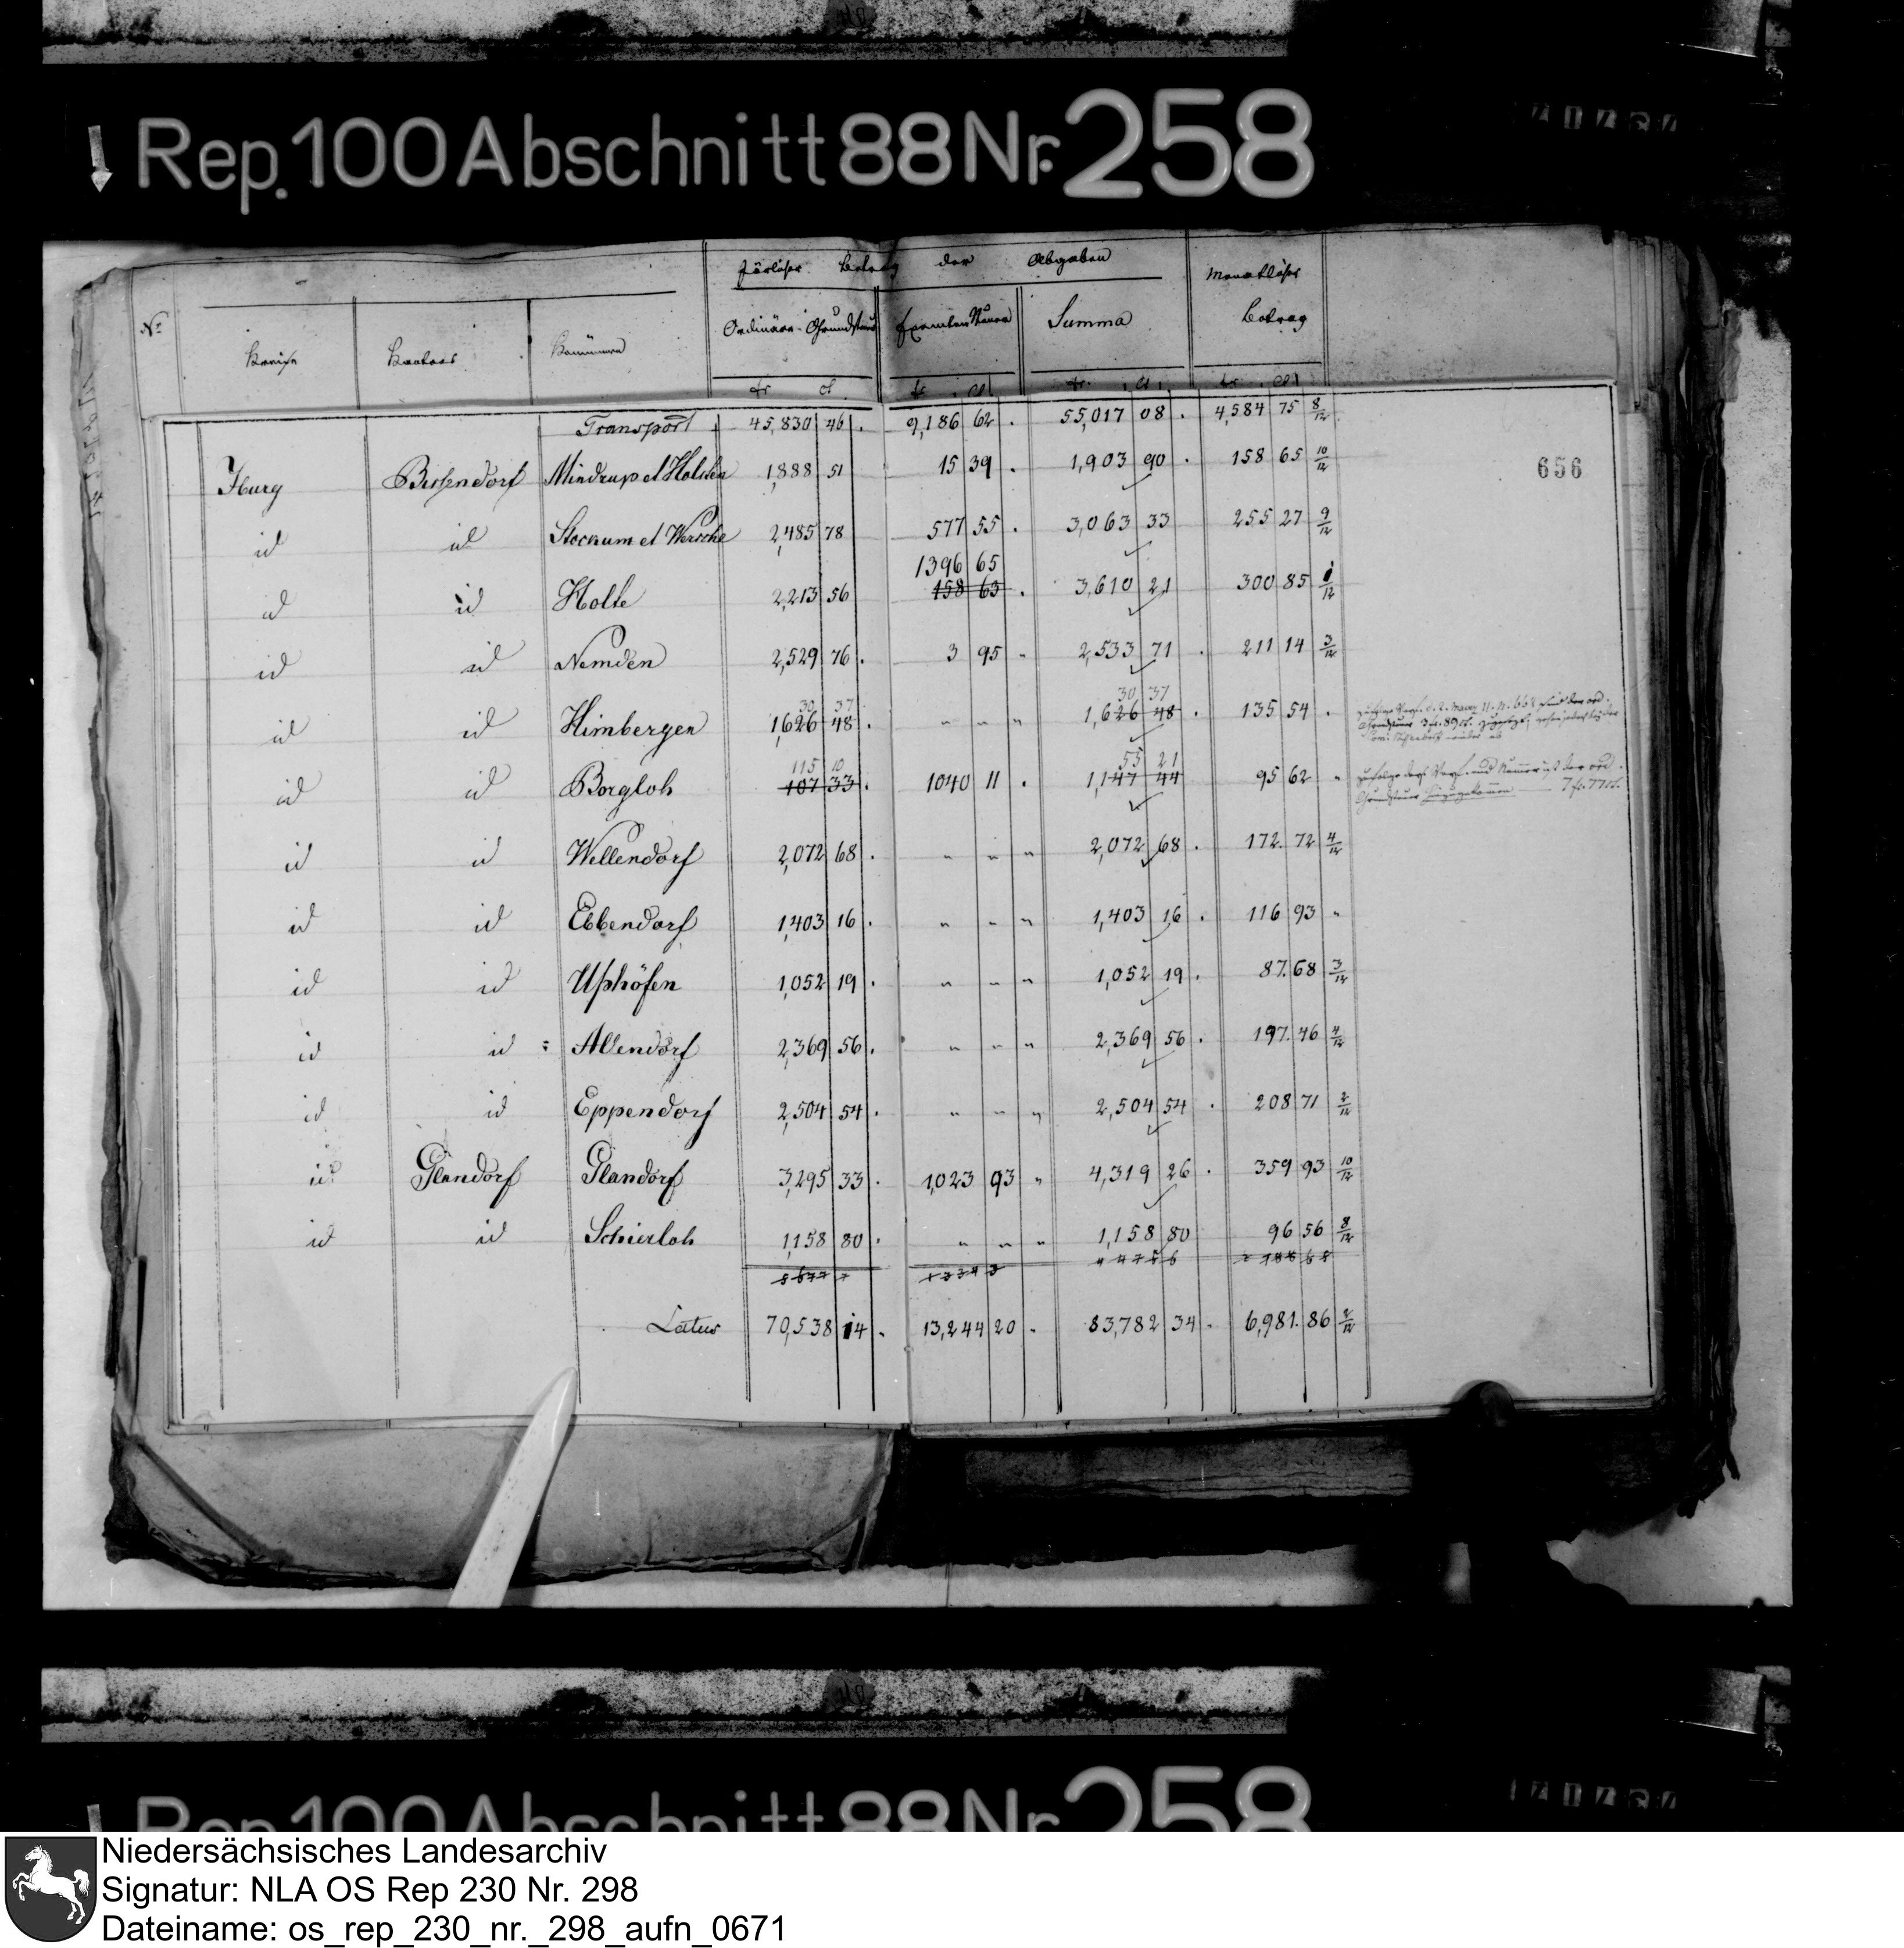 Rep. 100 Abschnitt 88 Nr. 258
Järlicher Betrag der Abgaben
Monatlicher Betrag
No
Kreise
Kantons
Ordinäre Grundsteuer
Exemten Steuer
Summa
fr ct
fr ct
fr. ct
fr. ct
Transport 45,830 46. 9,186 62. 55,017 08. 4,584 75 8/12.
656
Iburg Bissendorf Mindrup et Holsten 1,888 51 15 39. 1,903 90. 158 65 10/12
id id Stockum et Wersche 2,485 78 577 55. 3,063 33 255 27 9/12
1396 65
id id Holte 2,213 56 158 63. 3,610 21 300 85 1/12
id id Nemden 2,529 76. 3 95 " 2,533 71. 211 14 3/12
30 37 30 37
id id Himbergen 1,626 48. " " " 1,626 48. 135 54.
115 10 55 21
id id Borgloh 107 33. 1040 11. 1,147 44 95 62 "
Grundsteuer hinzugekommen 7 fr. 77 ct.
id id Wellendorf 2,072 68. " " " 2,072 68. 172. 72 4/12
id id Ebbendorf 1,403 16. " " " 1,403 16. 116 93 "
id id Uphöfen 1,052 19. " " " 1,052 19. 87. 68 3/12
id id Allendorf 2,369 56. " " " 2,369 56. 197. 46 4/12
id id Eppendorf 2,504 54. " " " 2,504 54. 208 71 2/12
id Glandorf Glandorf 3,295 33. 1,023 93 " 4,319 26. 359 93 10/12
id id Schierloh 1,158 80. " " " 1,158 80 96 56 8/12
Latus 70,538 14. 13,244 20. 83,782 34. 6,981. 86 2/12
Rep. 100 Abschnitt 88 Nr. 258
Niedersächsisches Landesarchiv
Signatur: NLA OS Rep 230 Nr. 298
Dateiname: os_rep_230_nr._298_aufn_0671